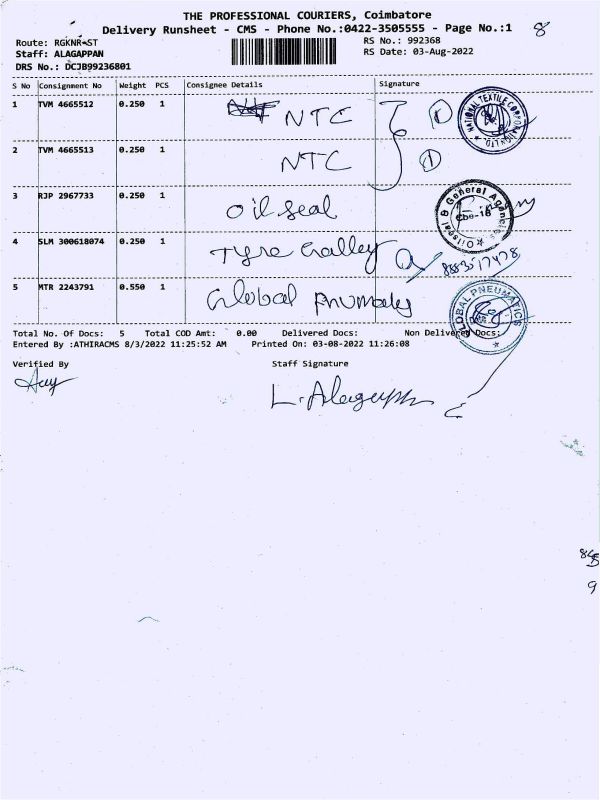 THE PROFESSIONAL COURIERS, Coimbatore
Delivery Runsheet - CMS - Phone No.:0422-3505555 - Page No.:1 8
Route: RGKNR-ST RS No.: 992368
Staff: ALAGAPPAN RS Date: 03-Aug-2022
DRS No.: DCJB99236801
S No Consignment No Weight PCS Consignee Details Signature
1 TVM 4665512 0.250 1 NTC 1 NATIONAL TEXTILE CORPORATION LTD.
2 TVM 4665513 0.250 1 NTC 1
3 RJP 2967733 0.250 1 Oil Seal Oilseal & General Agencies Cbe-18
4 SLM 300618074 0.250 1 Tyre Galley 8883517478
5 MTR 2243791 0.550 1 Global GLOBAL PNEUMATICS
Total No. Of Docs: 5 Total COD Amt: 0.00 Delivered Docs: Non Delivered Docs:
Entered By :ATHIRACMS 8/3/2022 11:25:52 AM Printed On: 03-08-2022 11:26:08
Verified By Staff Signature
9